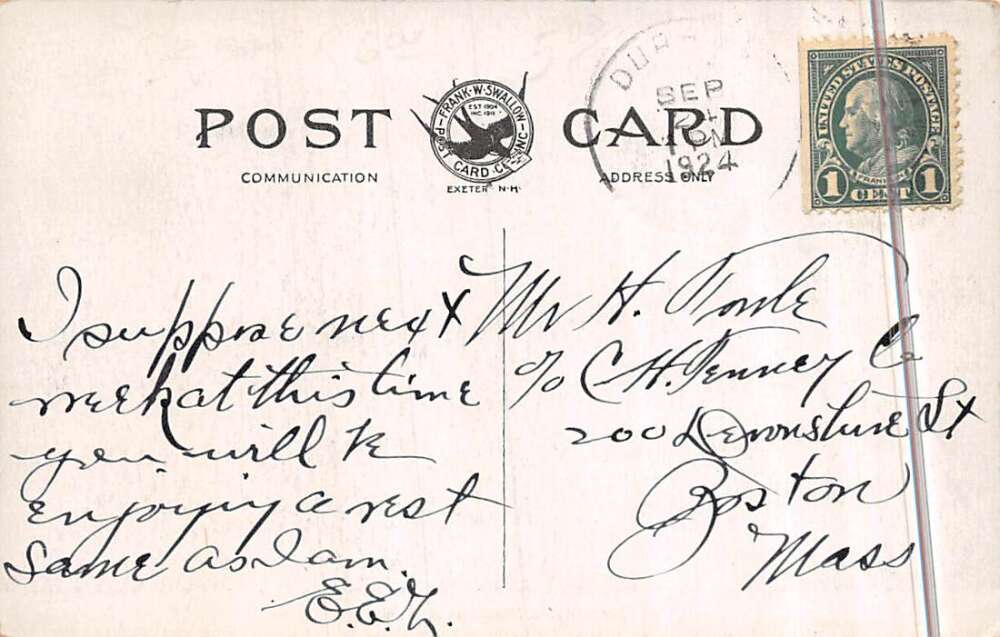 POST CARD
FRANK·W·SWALLOW
EST 1904
INC. 1911
POST CARD CO. INC.
EXETER N·H·
COMMUNICATION
ADDRESS ONLY
DUR
SEP
PM
1924
UNITED STATES POSTAGE
FRANKLIN
1 CENT 1
I suppose next
week at this time
you will be
enjoying a rest
same as I am.
Mr H. Towle
c/o C. H. Tenney Co
200 Devonshire St
Boston
Mass